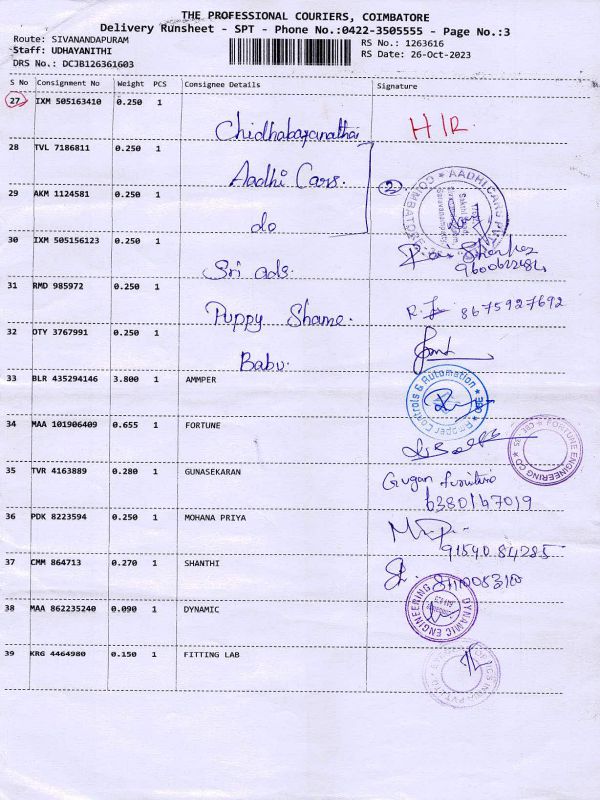 THE PROFESSIONAL COURIERS, COIMBATORE
Delivery Runsheet - SPT - Phone No.:0422-3505555 - Page No.:3
Route: SIVANANDAPURAM
RS No.: 1263616
Staff: UDHAYANITHI
RS Date: 26-Oct-2023
DRS No.: DCJB126361603
S No Consignment No Weight PCS Consignee Details Signature
27 IXM 505163410 0.250 1
H/R
28 TVL 7186811 0.250 1
Aadhi Cars.
2
AADHI CARS
29 AKM 1124581 0.250 1
do
30 IXM 505156123 0.250 1
Sri ads.
31 RMD 985972 0.250 1
8675927692
Puppy Shame.
32 OTY 3767991 0.250 1
Babu.
33 BLR 435294146 3.800 1 AMMPER
Controls & Automation
34 MAA 101906409 0.655 1 FORTUNE
FORTUNE ENGINEERING CO
35 TVR 4163889 0.280 1 GUNASEKARAN
Gugan
6380147019
36 PDK 8223594 0.250 1 MOHANA PRIYA
9154084285
37 CMM 864713 0.270 1 SHANTHI
38 MAA 862235240 0.090 1 DYNAMIC
DYNAMIC ENGINEERING
39 KRG 4464980 0.150 1 FITTING LAB